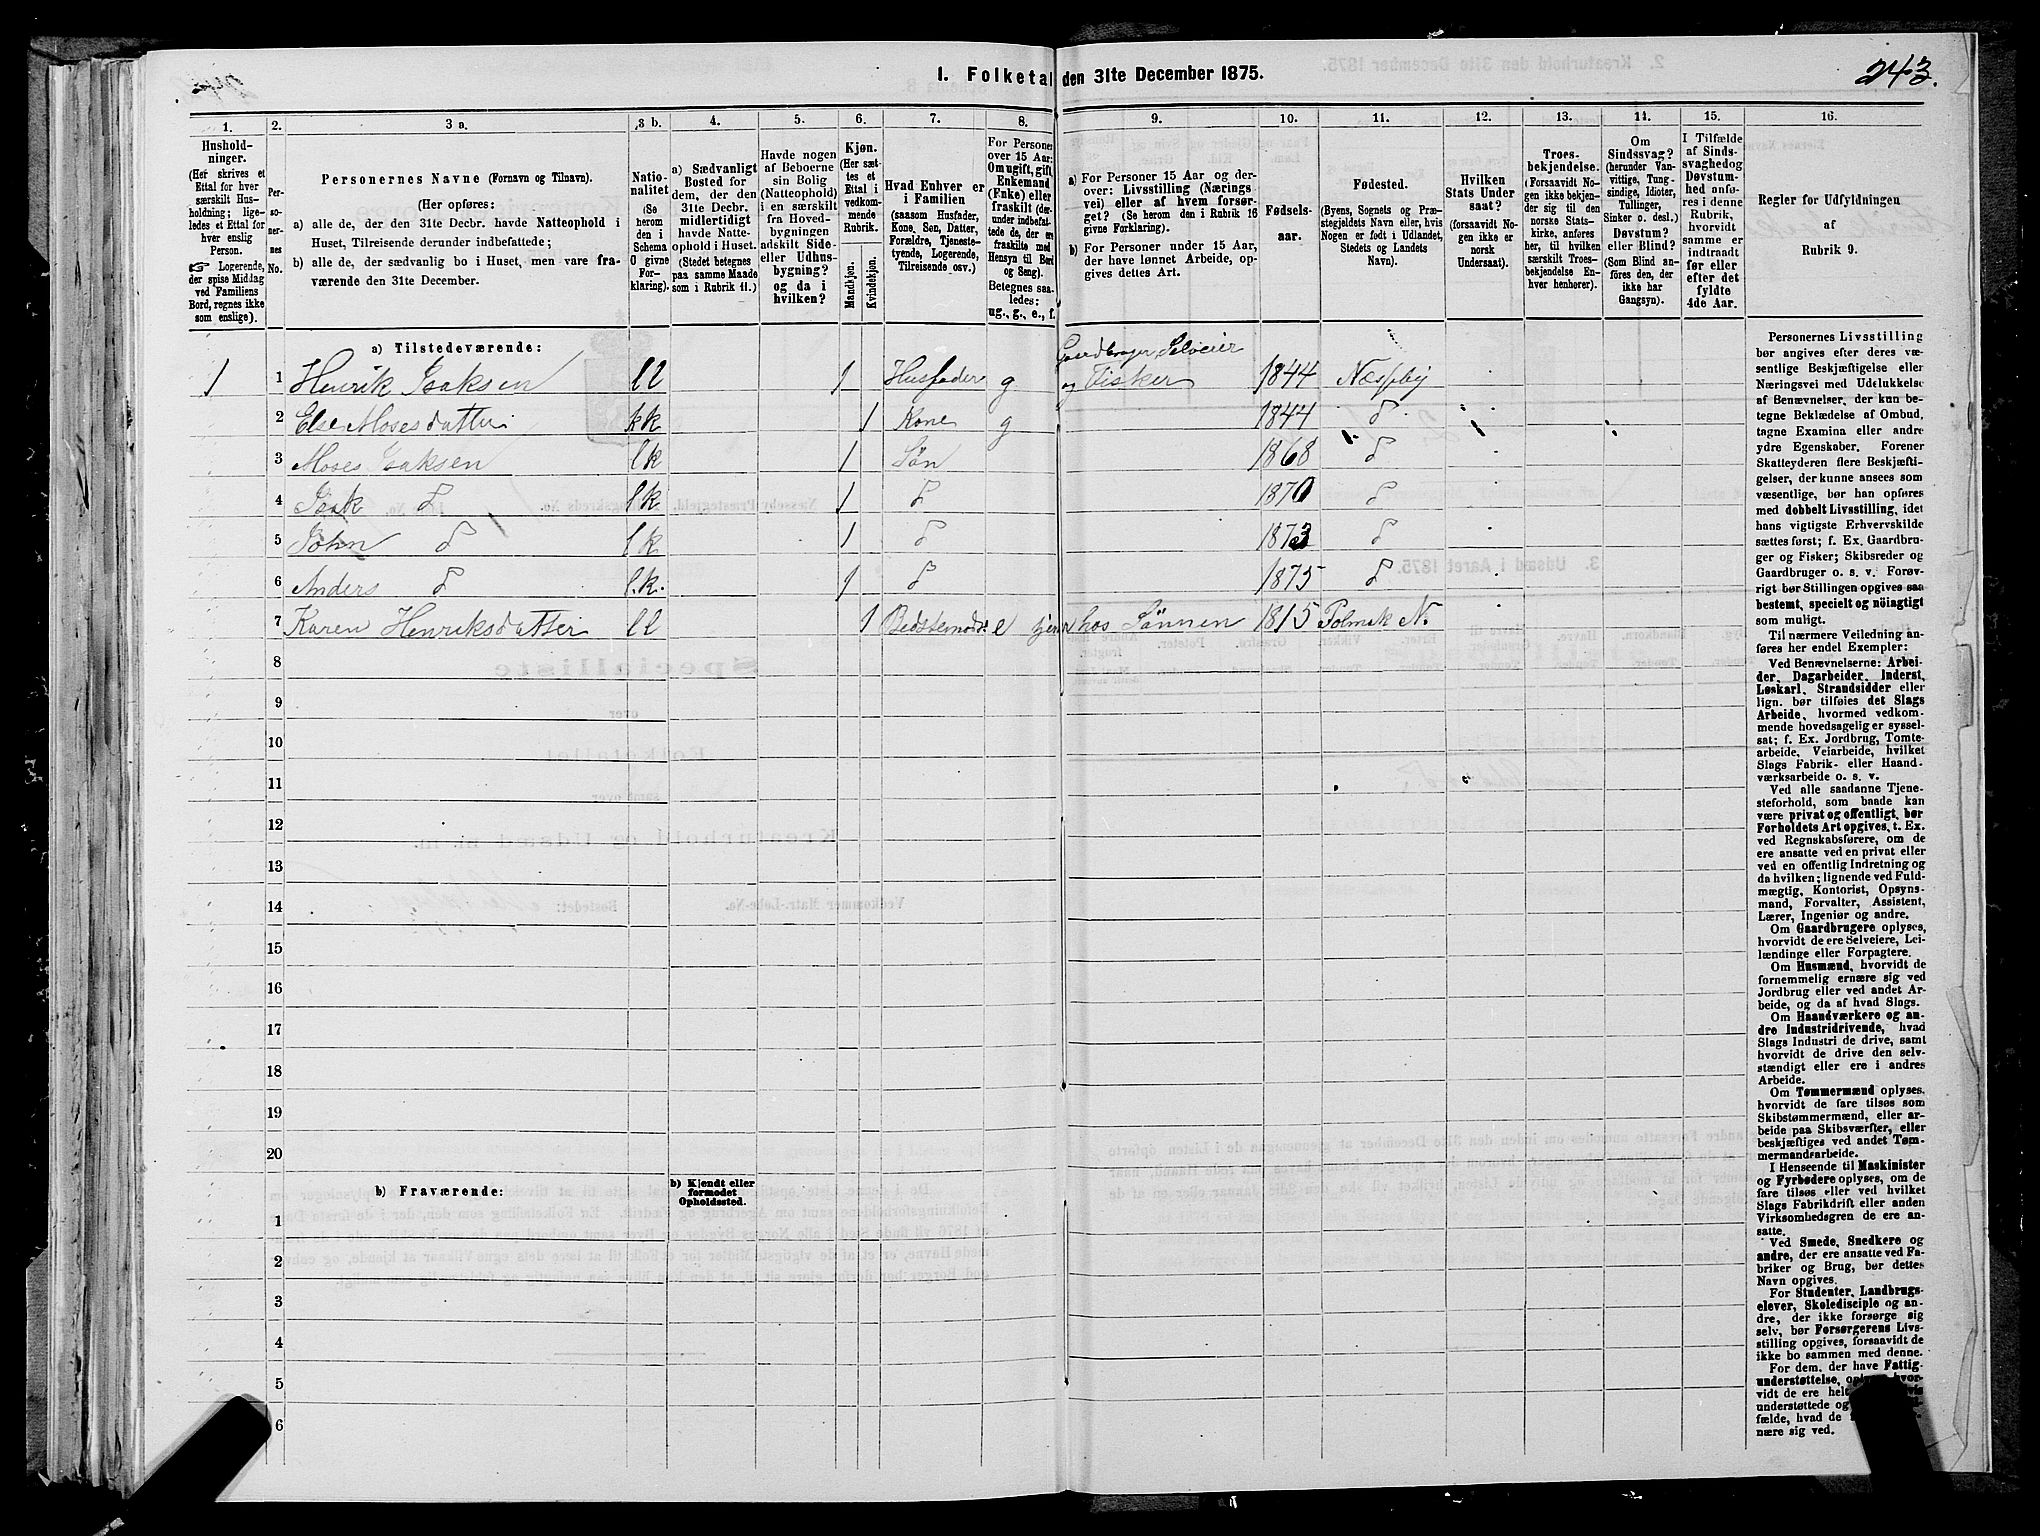 1. Folketal den 31te December 1875.
243.
1.
2.
3 a.
3 b.
4.
5.
6.
7.
8.
9.
10.
11.
12.
13.
14.
15.
16.
Hushold-
ninger.
(Her skrives et
Ettal for hver
særskilt Hus-
holdning; lige-
ledes et Ettal for
hver enslig
Person.
☞ Logerende,
der spise Middag
ved Familiens
Bord, regnes ikke
som enslige).
Per-
so-
ner-
nes
No.
Personernes Navne (Fornavn og Tilnavn).
(Her opføres:
a) alle de, der den 31te Decbr. havde Natteophold i
Huset, Tilreisende derunder indbefattede;
b) alle de, der sædvanlig bo i Huset, men vare fra-
værende den 31te December.
Natio-
nalitet
(Se
herom
den i
Schema
O givne
For-
klaring).
a) Sædvanligt
Bosted for
dem, der den
31te Decbr.
midlertidigt
havde Natte-
ophold i Huset.
(Stedet betegnes
paa samme Maade
som i Rubrik 11.)
Havde nogen
af Beboerne
sin Bolig
(Natteophold)
i en særskilt
fra Hoved-
bygningen
adskilt Side-
eller Udhus-
bygning?
og da i
hvilken?
Kjøn.
(Her sæt-
tes et
Ettal i
vedkom-
mende
Rubrik.
Mandkjøn.
Kvindekjøn.
Hvad Enhver er
i Familien
(saasom Husfader,
Kone, Søn, Datter,
Forældre, Tjeneste-
tyende, Logerende,
Tilreisende osv.)
For Personer
over 15 Aar:
Om ugift, gift,
Enkemand
(Enke) eller
fraskilt (der-
under indbefat-
tede de, der ere
fraskilte med
Hensyn til Bord
og Seng).
Betegnes saa-
ledes:
ug., g., e., f.
a) For Personer 15 Aar og der-
over: Livsstilling (Nærings-
vei) eller af hvem forsør-
get? (Se herom den i Rubrik 16
givne Forklaring).
b) For Personer under 15 Aar,
der have lønnet Arbeide, op-
gives dettes Art.
Fødsels-
aar.
Fødested.
(Byens, Sognets og Præ-
stegjeldets Navn eller, hvis
Nogen er født i Udlandet,
Stedets og Landets
Navn).
Hvilken
Stats Under-
saat?
(forsaavidt No-
gen ikke er
norsk
Undersaat).
Troes-
bekjendelse.
(Forsaavidt No-
gen ikke bekjen-
der sig til den
norske Stats-
kirke, anføres
her, til hvilken
særskilt Troes-
bekjendelse En-
hver henhører).
Om
Sindssvag?
(herunder Van-
vittige, Tung-
sindige, Idioter,
Tullinger,
Sinker o. desl.)
Døvstum?
eller Blind?
(Som Blind an-
føres den, der
ikke har
Gangsyn).
I Tilfælde
af Sinds-
svaghed og
Døvstum-
hed anfø-
res i denne
Rubrik,
hvorvidt
samme er
indtraadt
før eller
efter det
fyldte
4de Aar.
Regler for Udfyldningen
af
Rubrik 9.
a) Tilstedeværende:
1 1 Henrik Isaksen ll 1 Husfader g Gaardbruger, Selveier og Fisker 1844 Næsseby
2 Else Mosesdatter kk 1 Kone g 1844 d
3 Moses Isaksen lk 1 Søn 1868 d
4 Isak d lk 1 d 1870 d
5 John d lk 1 d 1873 d
6 Anders d l.k. 1 d 1875 d
7 Karen Henriksdatter ll 1 Bedstemoder e hos Sønnen 1815 Polmak N.
8
9
10
11
12
13
14
15
16
17
18
19
20
b) Fraværende:
b) Kjendt eller
formodet
Opholdssted.
1
2
3
4
5
6
Personernes Livsstilling
bør angives efter deres væ-
sentlige Beskjæftigelse eller
Næringsvei med Udelukkelse
af Benævnelser, der kun be-
tegne Beklædelse af Ombud,
tagne Examina eller andre
ydre Egenskaber. Forener
Skatteyderen flere Beskjæfti-
gelser, der kunne ansees som
væsentlige, bør han opføres
med dobbelt Livsstilling, idet
hans vigtigste Erhvervskilde
sættes først; f. Ex. Gaardbru-
ger og Fisker; Skibsreder og
Gaardbruger o. s. v. Forøv-
rigt bør Stillingen opgives saa
bestemt, specielt og nöiagtigt
som muligt.
Til nærmere Veiledning an-
føres her endel Exempler:
Ved Benævnelserne: Arbei-
der, Dagarbeider, Inderst,
Løskarl, Strandsidder eller
lign. bør tilføies det Slags
Arbeide, hvormed vedkom-
mende hovedsagelig er syssel-
sat; f. Ex. Jordbrug, Tomte-
arbeide, Veiarbeide, hvilket
Slags Fabrik- eller Haand-
værksarbeide o. s. v.
Ved alle saadanne Tjene-
steforhold, som baade kan
være privat og offentligt, bør
Forholdets Art opgives, t. Ex.
ved Regnskabsførere, om de
ere ansatte ved en privat eller
ved en offentlig Indretning og
da hvilken; lignende ved Fuld-
mægtig, Kontorist, Opsyns-
mand, Forvalter, Assistent,
Lærer, Ingeniør og andre.
Om Gaardbrugere oplyses,
hvorvidt de ere Selveiere, Lei-
lændinge eller Forpagtere.
Om Husmænd, hvorvidt de
fornemmelig ernære sig ved
Jordbrug eller ved andet Ar-
beide, og da af hvad Slags.
Om Haandværkere og an-
dre Industridrivende, hvad
Slags Industri de drive, samt
hvorvidt de drive den selv-
stændigt eller ere i andres
Arbeide.
Om Tømmermænd oplyses,
hvorvidt de fare tilsøs som
Skibstømmermænd, eller ar-
beide paa Skibsværfter, eller
beskjæftiges ved andet Tøm-
mermandsarbeide.
I Henseende til Maskinister
og Fyrbødere oplyses, om de
fare tilsøs eller ved hvilket
Slags Fabrikdrift eller anden
Virksomhedsgren de ere an-
satte.
Ved Smede, Snedkere og
andre, der ere ansatte ved Fa-
briker og Brug, bør dettes
Navn opgives.
For Studenter, Landbrugs-
elever, Skoledisciple og an-
dre, der ikke forsørge sig
selv, bør Forsørgerens Livs-
stilling opgives, forsaavidt de
ikke bo sammen med denne.
For dem, der have Fattig-
understøttelse, hvor-
vidt de ere
understøttede og
fælde, hvad de
nære sig ved.